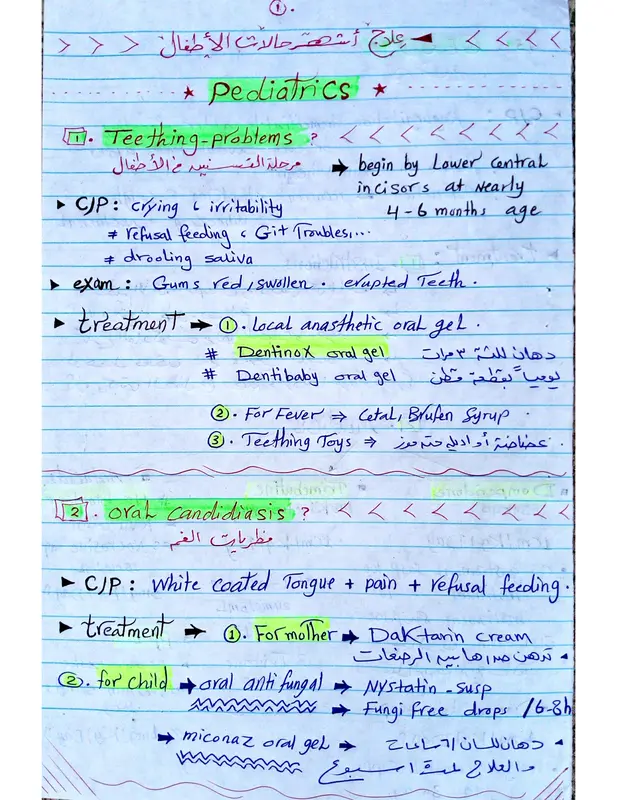 ①.
علاج أشهر حالات الأطفال
Pediatrics
1. Teething-problems ?
مرحلة التسنين في الأطفال
→ begin by Lower central
incisors at Nearly
4-6 months age
C/P: crying & irritability
# refusal feeding & Git Troubles,...
# drooling saliva
exam: Gums red, swollen. erupted Teeth.
treatment → ①. Local anasthetic oral gel.
# Dentinox oral gel دهان للثة ٣ مرات
# Dentibaby oral gel يومياً بقطعة قطن
②. For Fever ⇒ Cetal, Brufen Syrup
③. Teething Toys ⇒ عضاضة أو اديله حته موز
2. oral candidiasis ?
فطريات الفم
C/P: White coated Tongue + pain + refusal feeding.
treatment → ①. For mother → Daktarin cream
تدهن صدرها بين الرضعات
②. for child → oral anti fungal → Nystatin-susp
→ Fungi free drops /6-8h
→ miconaz oral gel → دهان للسان /٦ ساعات
والعلاج لمدة اسبوع